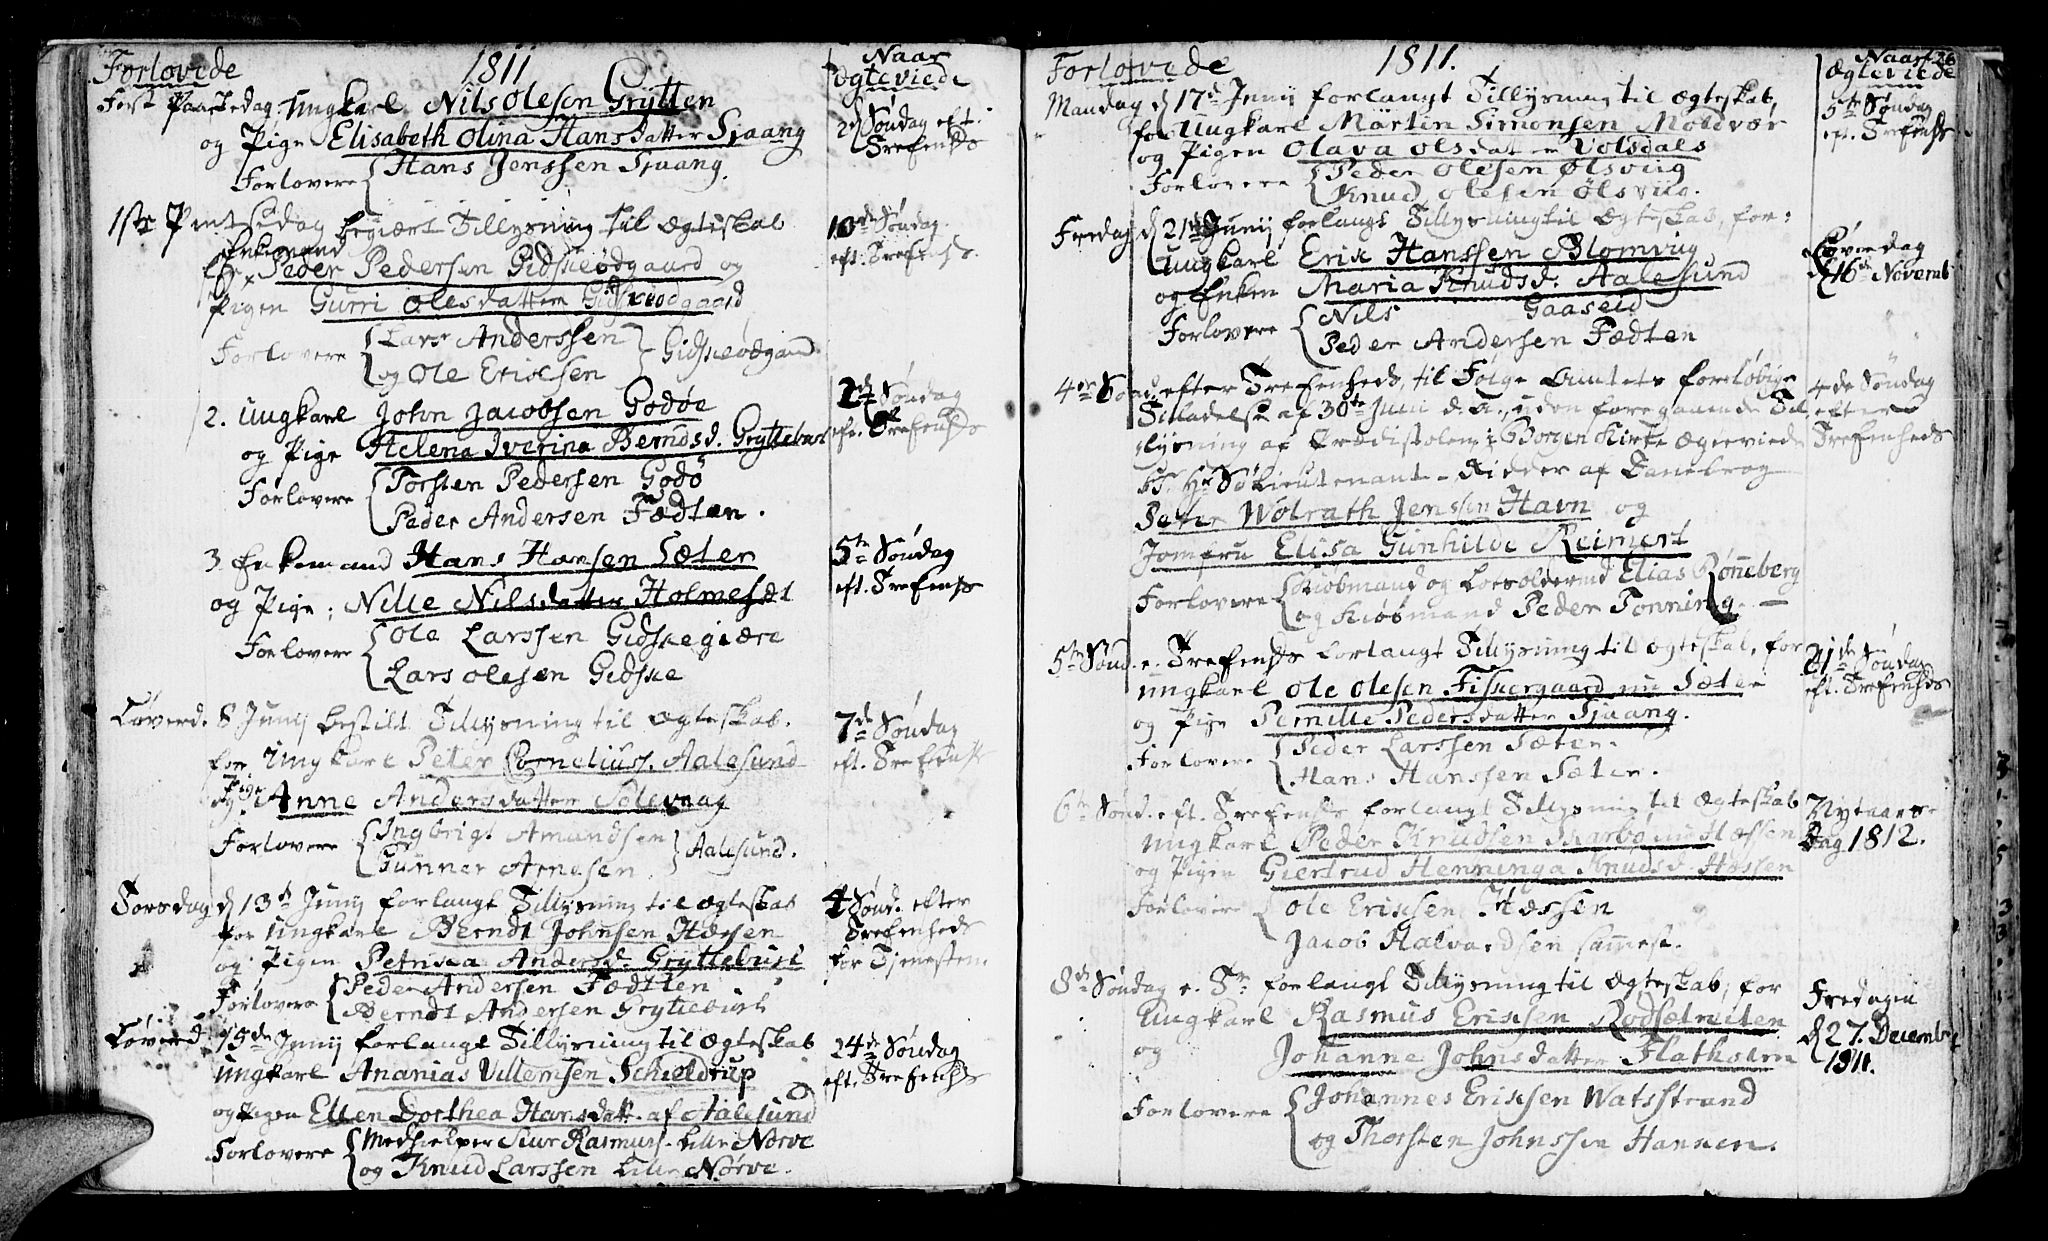 Forlovede 1811 Naar Ægteviede
Først Paaskedag. Ungkarl Nils Olesen Grytten
og Pige Elisabeth Olina Hansdatter Giaang
Forlovere Hans Jenssen Giaang.
2d Søndag eft.
Trefends
1ste Pintsedag begiært Tillysning til Ægteskab
Enkemand
for Peder Pedersen Gidskeødgaard og
Pigen Gurri Olesdatter Gidskeødgaard
Forlovere Lars Anderssen
og Ole Ericksen Gidskeødgaard
10de Søndag
eft. Trefends.
2. Ungkarl John Jacobsen Godøe
og Pige Helena Iverina Berndsd. Gryttebust
Forlovere Torsten Pedersen Godö
Peder Andersen Fædten.
2d Søndag
eft. Trefends
3 Enkemand Hans Hansen Sæter
og Pige; Nille Nilsdatter Holmesæt
Forlovere Ole Larssen Gidskegiære
Lars Olesen Gidske
5te Søndag
eft. Trefends
Løverd. 8 Junij bestilt Tillysning til Ægteskab.
for Ungkarl Peter Corneliuss. Aalesund
Pige
og Anne Andersdatter Solevaag
Forlovere Ingbrigt Amundsen
Gunner Arnesen Aalesund.
7de Søndag
eft. Trefends
Torsdag d 13d Junij forlangt Tillysning til Ægteskab
for Ungkarl Berndt Johnsen Hæsen
og Pigen Petricka Andersd. Gryttebust
Forlovere Peder Andersen Fædtten
Berndt Andersen Gryttebust
4 Sønd. efter
Trefenheds
for Tjenesten.
Løverd. 15de Junij forlangt Tillysning til Ægteskab
Ungkarl Ananias Villemsen Schieldrup
og Pigen Ellen Dorthea Hansdatt. af Aalesund
Forlovere Medhielper Siur Rasmuss. Lille Nørve
og Knud Larssen Lille Nørve.
24de Søndag
eft. Trefends
Forlovede 1811. Naar 26
Ægteviede
Mandag d 17d Junij forlangt Tillysning til Ægteskab,
for Ungkarl Martin Simonsen Moldvær
og Pigen Olava Olsdatter Volsdals
Forlovere Peder Olesen Ølsviig
Knud Olesen Ølsviig.
5te Søndag
eft. Trefends
Fredag d 21de Junij forlangt Tillysning til Ægteskab, for:
Ungkarl Erik Hanssen Blomviig
og Enken Maria Knudsd. Aalesund
Forlovere Nils Gaaseid
Peder Andersen Fædten
Løverdag
d 16de Novemb
4de Sønd. efter Trefenheds, til Følge Amtets foreløbige
Tilladelse af 30te Juni d. A., uden foregaaende Til
lysning af Prædikestolen, i Borgen Kirke Ægteviede
S.T. Hr SøLieutenant Ridder af Danebrog
Peter Wolrath Jenssen Havn og
Jomfru Elisa Gunhilde Reimert
Forlovere Kiøbmand og Lodsoldermd Elias Rönneberg
og Kiøbmand Peder Tonning.
4de Søndag
efter
Trefenheds
5te Sønd. e. Trefends forlangt Tillysning til Ægteskab, for
Ungkarl Ole Olesen Fiskergaard nu Sæter
og Pige Pernille Pedersdatter Giaang.
Forlovere Peder Larssen Sæter.
Hans Hanssen Sæter.
21de Søndag
eft. Trefends
6te Sønd. eft. Trefends forlangt Tillysning til Ægteskab
Ungkarl Peder Knudsen Skarbø nu Hæssen
og Pigen Giertrud Henninga Knudsd Hæssen
Forlovere Ole Ericksen Hæssen
Jacob Halvardsen sammest.
Nytaars
Dag 1812.
8de Søndag e. Tr. forlangt Tillysning til Ægteskab, for
Ungkarl Rasmus Ericksen Rødsætviten
og Johanne Johnsdatter Flatholm
Forlovere Johannes Ericksen Watsstrand
og Thorsten Johnssen Hannen.
Fredagen
d 27. Decembr
1811.